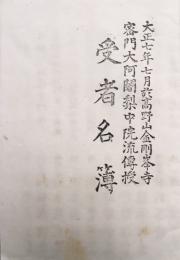 大正七年七月於高野山金剛峯寺
密門大阿闍梨中院流傳授
受者名簿